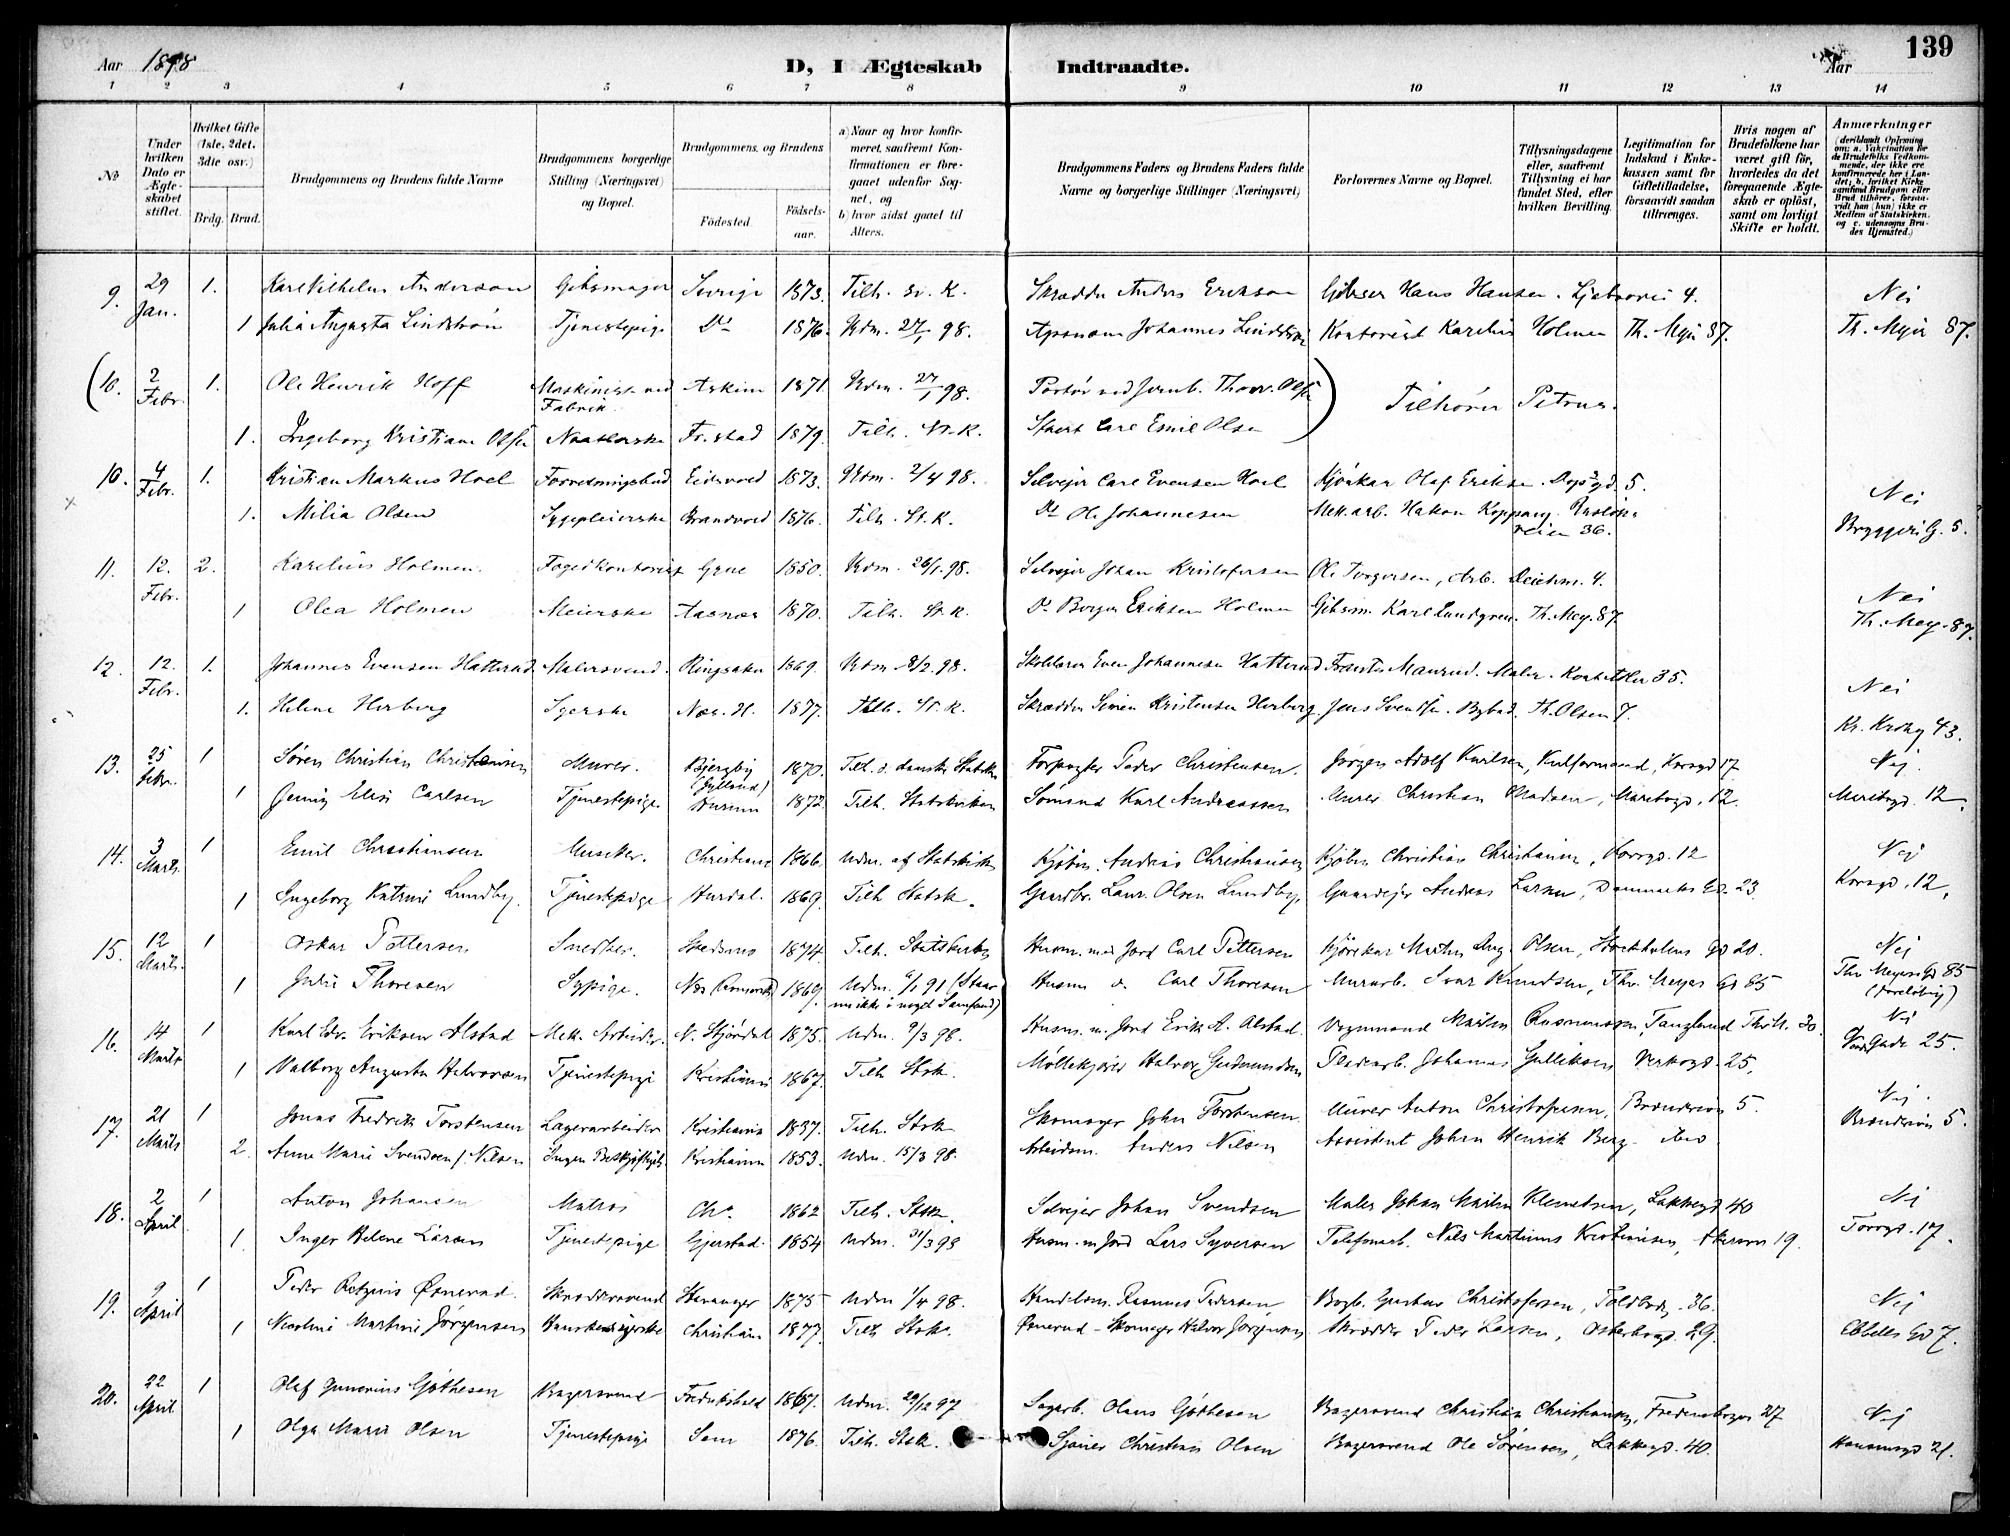 Aar 1898
D, I Ægteskab Indtraadte.
Aar
139
1 2 3 4 5 6 7 8 9 10 11 12 13 14
No
Under hvilken Dato er Ægteskabet stiftet.
Hvilket Gifte (1ste, 2det, 3die osv.)
Brdg. Brud.
Brudgommens og Brudens fulde Navne
Brudgommens borgerlige Stilling (Næringsvei) og Bopæl.
Brudgommens og Brudens
Fødested.
Fødselsaar.
a) Naar og hvor konfirmeret, saafremt Konfirmationen er foregaaet udenfor Sognet, og
b) hvor sidst gaaet til Alters.
Brudgommens Faders og Brudens Faders fulde Navne og borgerlige Stillinger (Næringsvei)
Forlovernes Navne og Bopæl.
Tillysningsdagene eller, saafremt Tillysning ei har fundet Sted, efter hvilken Bevilling.
Legitimation for Indskud i Enkekassen samt for Giftetilladelse, forsaavidt saadan tiltrænges.
Hvis nogen af Brudefolkene har været gift før, hvorledes da det foregaaende Ægteskab er opløst, samt om lovligt Skifte er holdt.
Anmærkninger
(deriblandt Oplysning om: a. Vakcination for de Brudefolks Vedkommende, der ikke ere konfirmerede her i Landet; b. hvilket Kirkesamfund Brudgom eller Brud tilhører, forsaavidt han (hun) ikke er Medlem af Statskirken, og c. udensogns Brudes Hjemsted.)
9. 29 Jan. 1. Karl Vilhelm Anderson Gibsmager Sverige 1873. Tilh. sv. K. Skrædder Anders Erikson Gibser Hans Hansen. Ljabrovei 4. Nei
1 Julia Augusta Lindström Tjenestepige Do 1876. Udm. 27/1 98. Johannes Lindström Kontorist Karelius Holmen Th. Mejer 87. Th. Mejer 87.
(10. 2 Febr. 1. Ole Henrik Hoff Maskinist ved Fabrik. Askim 1871. Udm. 27/1 98. Portör ved Jernb. Thorv. Olsen) Tilhører Petrus.
1. Ingeborg Kristiane Olsen Fr.stad 1879. Tilh. St. K. Carl Emil Olsen
10. 4 Febr. 1. Kristian Markus Hoel Forretningsbud Eidsvold 1873. Udm. 2/4 98. Selveier Carl Evensen Hoel Kjörekar Olaf Eriksen. 5. Nei
1. Milia Olsen Sygepleierske Brandvold 1876. Tilh. St. K. Do Ole Johannesen Mek. arb. Hakon Koppang. veien 36. Bryggerig. 5.
11. 12. Febr. 2. Karelius Holmen. Fogedkontorist Grue 1850. Udm. 26/1. 98. Selveier Johan Kristofersen Ole Torgersen, Arb. Deichm. 4. Nei
1 Olea Holmen Meierske Aasnes 1870. Tilh. St. K. Do Borger Eriksen Holmen Gibsm. Karl Lundgren. Th. Mey. 87. Th. Mey. 87.
12. 12. Febr. 1. Johannes Evensen Hatterud Malersvend. Ringsaker 1869. Udm 8/2. 98. Skolelærer Even Johannesen Hatterud Maurud. Maler. 35. Nei
1. Helene Herberg Syerske Nær. H. 1877. Tilh. St. K. Skrædder Simen Kristensen Herberg. Jens Svendsen. Bybud. Th. Olsen 7. Kr. Krohg 43.
13. 25 Febr. 1 Søren Christian Christensen Murer. Bjergby (Jylland) 1870. Tilh. d. danske Statsk. Forpagter Peder Christensen. Jørgen Adolf Karlsen, Kulformand, Korsgd 17 Nej.
1 Jenny Elise Carlsen Tjenestepige Hurum 1872. Tilh. Statskirken Sømand Karl Andreassen Murer Christian Madsen, Maribogd. 12. Maribogd. 12.
14. 3 Marts. 1 Emil Christiansen Musiker. Christiania 1866. Udm. af Statskirken Kjøbm. Andreas Christiansen Kjøbm Christian Christiansen, Korsgd. 12 Nej
1 Ingeborg Katrine Lundby. Tjenestepige Hurdal. 1869. Tilh Statsk. Gaardbr. Laur. Olsen Lundby, Gaardejer Andreas Larsen, Danmarks Gd. 23. Korsgd. 12,
15. 12 Marts. 1 Oskar Pettersen Snedker. Skedsmo 1874. Tilh. Statskirken Husm. med Jord Carl Pettersen Kjörekar Martin Aug. Olsen, Stockholms gd 20. Nej
1 Julie Thoresen Sypige. 1869. Udm. 6/1 91 (Staar nu ikke i noget Samfund) Husm d. Carl Thoresen Murarb. Ivar Knudsen, Thv. Meyers Gd 85 Thv Meyers Gd 85 (foreløbig)
16. 14 Marts 1 Karl Edv. Eriksen Alstad Mek. Arbeider. N. Stjørdal 1875. Udm. 9/3 98. Husm. m. Jord Erik A. Alstad. Vognmand Martin Rasmussen, Nej
1 Valborg Augusta Halvorsen Tjenestepige Kristiania 1867. Tilh Stsk. Møllekjører Halvor Gudmundsen Pladearb. Johannes Gulliksen Verksgd. 25, Gade 25.
17. 21 Marts 1 Jonas Fredrik Torstensen Lagerarbeider Kristiania 1837. Tilh. Stsk Skomager John Torstensen. Murer Anton Christofersen, 5. Nej.
2. Anne Marie Svendsen f. Nilsen Ingen Beskjæftigh. Kristiania 1853. Udm. 15/3 98. Arbeidsm. Anders Nilsen Assistent Johan Henrik Berg. ibid 5.
18. 2 April 1 Anton Johansen Matros Cha. 1862 Tilh. Stsk. Selvejer Johan Svendsen Maler Johan Martin Klemetsen, Lakkegd 40 Nej
1. Inger Helene Larsen Tjenestepige Gjerstad. 1854 Udm. 31/3 98 Husm. m Jord Lars Syversen Telefonarb. Nils Martinius Kristiansen, 19. Torvgd. 17.
19. 9 April 1 Peder Ørnerud. Skræddersvend Stavanger 1875 Udm 1/4 98. Handelsm. Rasmus Pedersen Bogb. Gustav Christofersen, Toldbodg. 36. Nej
1 Martine Jørgensen Hanskesyerske Christiania 1877. Tilh Stsk. Ørnerud – Skomager Halvor Jørgensen Skrædder Peder Larsen, Osterhausgd. 29. Ebbells Gd 7.
20. 22 April 1 Olaf Gunerius Gjøthesen Bagersvend Fredrikshald 1867. Udm. 29/12 97 Sagarb. Olaus Gjøthesen Bagersvend Christian Christiansen, Fredensborgv 27 Nej
1 Olga Marie Olsen Tjenestepige Sem 1876. Tilh. Stsk. Christian Olsen Bagersvend Ole Sørensen, Lakkegd. 40. Hausmgd 21.